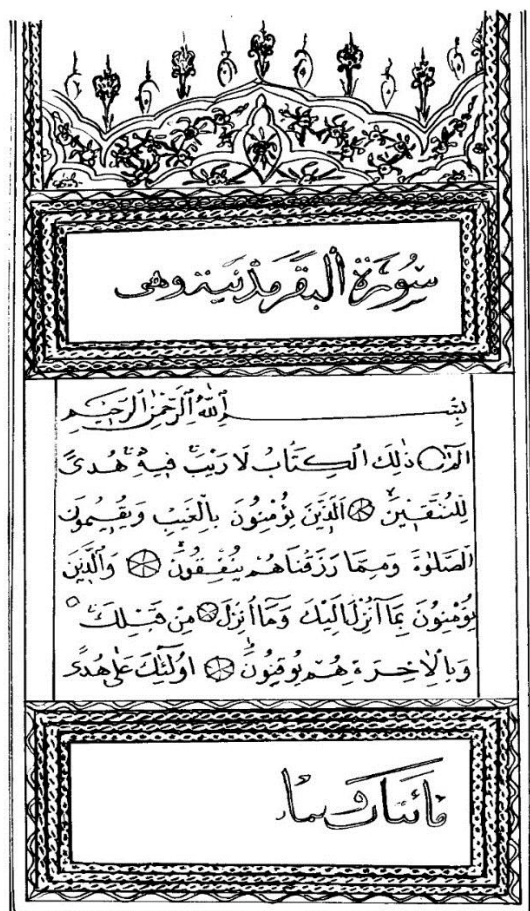 سُورَةُ الْبَقَرَ مَدَنِيَّة وهى
بِسْمِ اللّٰهِ الرَّحْمٰنِ الرَّحِيمِ
الٓمٓ ذٰلِكَ الْكِتَابُ لَا رَيْبَ فِيهِ هُدًى
لِلْمُتَّقِينَ الَّذِينَ يُؤْمِنُونَ بِالْغَيْبِ وَيُقِيمُونَ
الصَّلٰوةَ وَمِمَّا رَزَقْنَاهُمْ يُنْفِقُونَ وَالَّذِينَ
يُؤْمِنُونَ بِمَا اُنْزِلَ اِلَيْكَ وَمَا اُنْزِلَ مِنْ قَبْلِكَ
وَبِالْاٰخِرَةِ هُمْ يُوقِنُونَ اُولٰئِكَ عَلٰى هُدًى